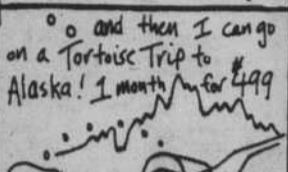 and then I can go
on a Tortoise Trip to
Alaska! 1 month for $499